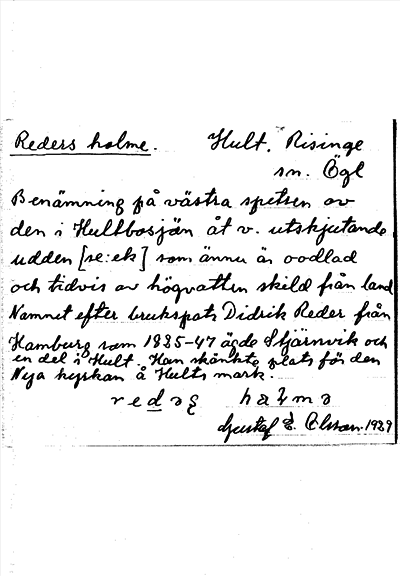 Reders holme. Hult. Risinge
sn. Ögl
Benämning på västra spetsen av
den i Hultbosjön åt v. utskjutande
udden [se: ek] som ännu är oodlad
och tidvis av högvatten skild från land
Namnet efter brukspats Didrik Reder från
Hamburg som 1835-47 ägde Stjärnvik och
en del i Hult. Han skänkte plats för den
Nya kyrkan å Hults mark.
Gustaf E. Olsson. 1929